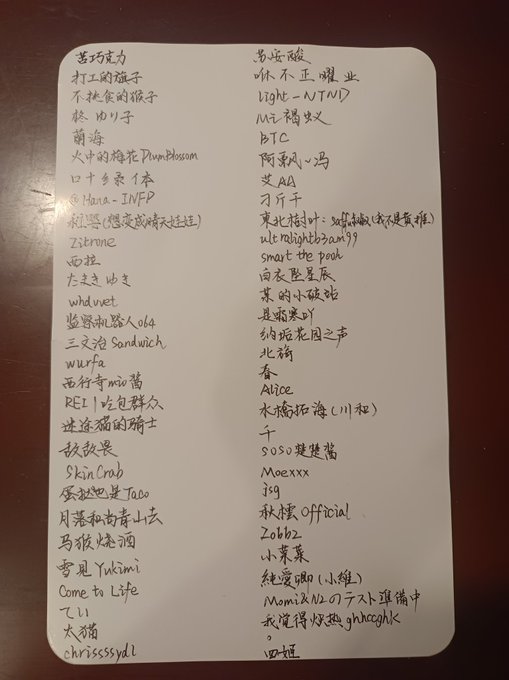 苦巧克力
打工的旗子
不挑食的猴子
柊 ゆり子
萌海
火中的梅花Plumblossom
口十乡录 亻本
@Hana-INFP
(想变成晴天娃娃)
Zitrone
西拉
たまき ゆき
whdvvet
监察机器人064
三文治 Sandwich
wurfa
西行寺mio酱
REI|吃包群众
迷途猫的骑士
敌敌畏
SkinCrab
蛋挞也是Taco
月落和尚青山去
马猴烧酒
雪見 Yukimi
Come to Life
てい
太猫
chrissssydl
苏安酸
咻不正曜业
light-NTND
Mi褐蚁
BTC
阿飘~冯
艾AA
刁斤千
東北樹叶: (我不是黄推)
ultralightb3am99
smart the pooh
白衣坠星辰
某的小破站
是霜寒吖
纳垢花园之声
北旖
春
Alice
水橋拓海(川和)
千
SOSO楚楚醬
Moexxx
jsg
秋橒Official
Zobbz
小菜菜
純愛卿(小維)
Momi&N2のテスト準備中
我觉得炽热ghhccghk
。
四姬